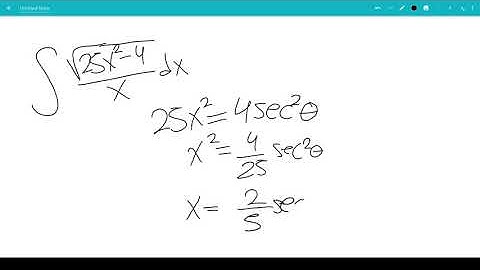 Untitled Note
∫ √(25x²-4)/x dx
25x² = 4sec²θ
x² = 4/25 sec²θ
x = 2/5 sec